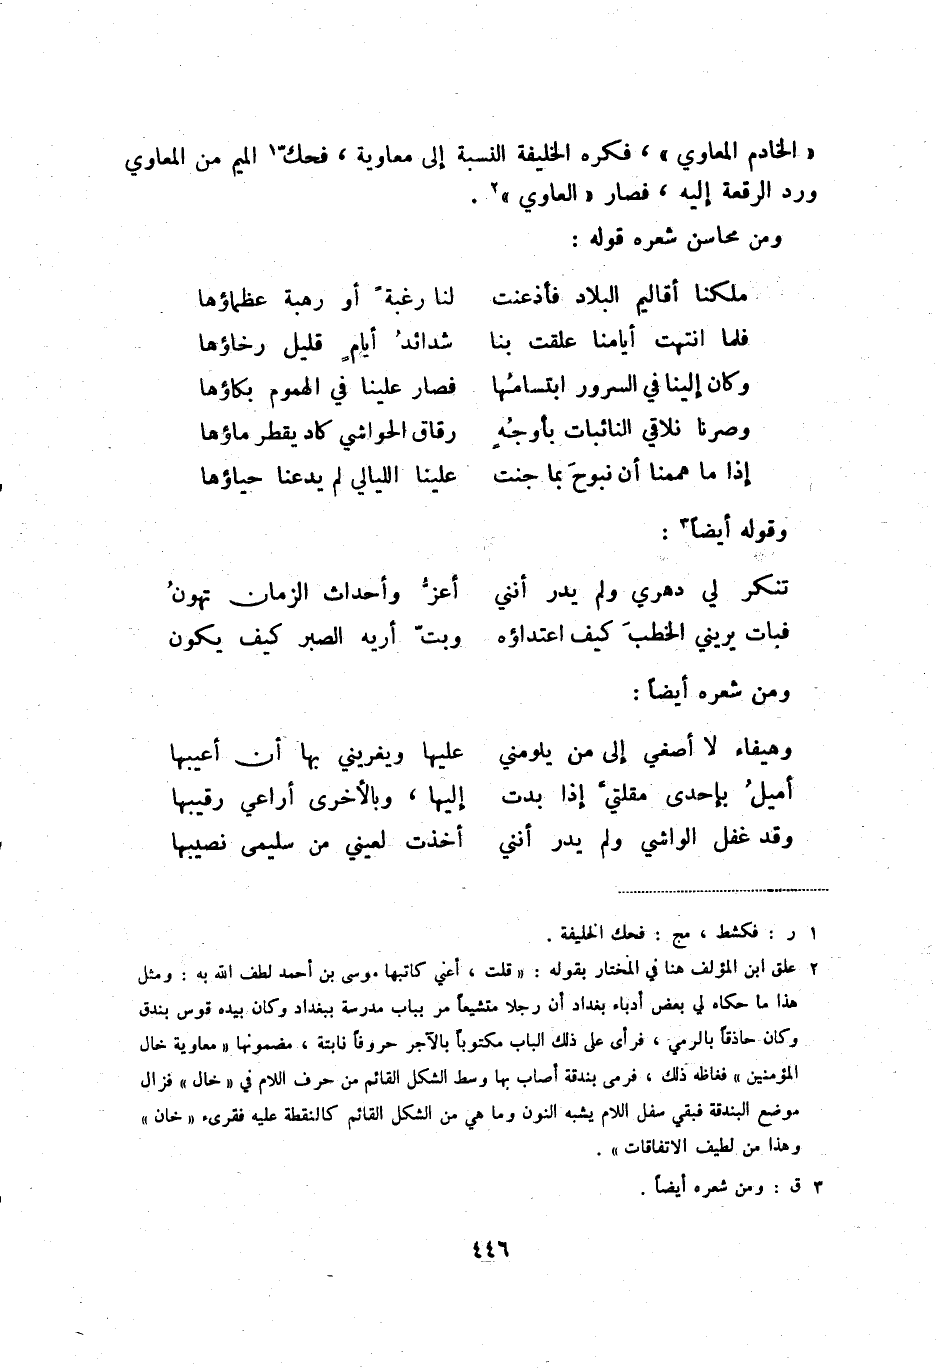 « الخادم المعاوي » ، فكره الخليفة النسبة إلى معاوية ، فحكّ١ الميم من المعاوي
ورد الرقعة إليه ، فصار « العاوي »٢ .
ومن محاسن شعره قوله :
ملكنا أقاليم البلاد فأذعنت لنا رغبةً أو رهبة عظماؤها
فلما انتهت أيامنا علقت بنا شدائدُ أيامٍ قليل رخاؤها
وكان إلينا في السرور ابتسامُها فصار علينا في الهموم بكاؤها
وصرنا نلاقي النائبات بأوجُهٍ رقاق الحواشي كاد يقطر ماؤها
إذا ما هممنا أن نبوحَ بما جنت علينا الليالي لم يدعنا حياؤها
وقوله أيضاً٣ :
تنكر لي دهري ولم يدر أنني أعزُّ وأحداث الزمان تهونُ
فبات يريني الخطبَ كيف اعتداؤه وبتّ أريه الصبر كيف يكون
ومن شعره أيضاً :
وهيفاء لا أصغي إلى من يلومني عليها ويغريني بها أن أعيبها
أميلُ بإحدى مقلتيّ إذا بدت إليها ، وبالأخرى أراعي رقيبها
وقد غفل الواشي ولم يدر أنني أخذت لعيني من سليمى نصيبها
١ ر : فكشط ، مج : فحك الخليفة .
٢ علق ابن المؤلف هنا في المختار بقوله : « قلت ، أعني كاتبها موسى بن أحمد لطف الله به : ومثل
هذا ما حكاه لي بعض أدباء بغداد أن رجلا متشيعاً مر بباب مدرسة ببغداد وكان بيده قوس بندق
وكان حاذقاً بالرمي ، فرأى على ذلك الباب مكتوباً بالآجر حروفاً نابتة ، مضمونها « معاوية خال
المؤمنين » فغاظه ذلك ، فرمى ببندقة أصاب بها وسط الشكل القائم من حرف اللام في « خال » فزال
موضع البندقة فبقي سفل اللام يشبه النون وما هي من الشكل القائم كالنقطة عليه فقرىء « خان »
وهذا من لطيف الاتفاقات » .
٣ ق : ومن شعره أيضاً .
٤٤٦